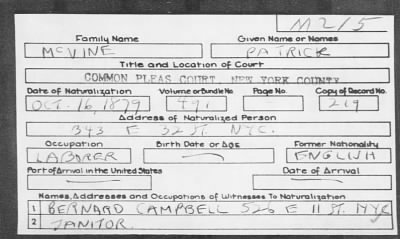 M215
Family Name Given Name or Names
MCVINE PATRICK
Title and Location of Court
COMMON PLEAS COURT, NEW YORK COUNTY
Date of Naturalization Volume or Bundle No. Page No. Copy of Record No.
OCT. 16, 1879 491 219
Address of Naturalized Person
343 E 32 ST. NYC.
Occupation Birth Date or Age Former Nationality
LABORER ENGLISH
Port of Arrival in the United States Date of Arrival
Names, Addresses and Occupations of Witnesses To Naturalization
1 BERNARD CAMPBELL 526 E 11 ST. NYC
2 JANITOR.